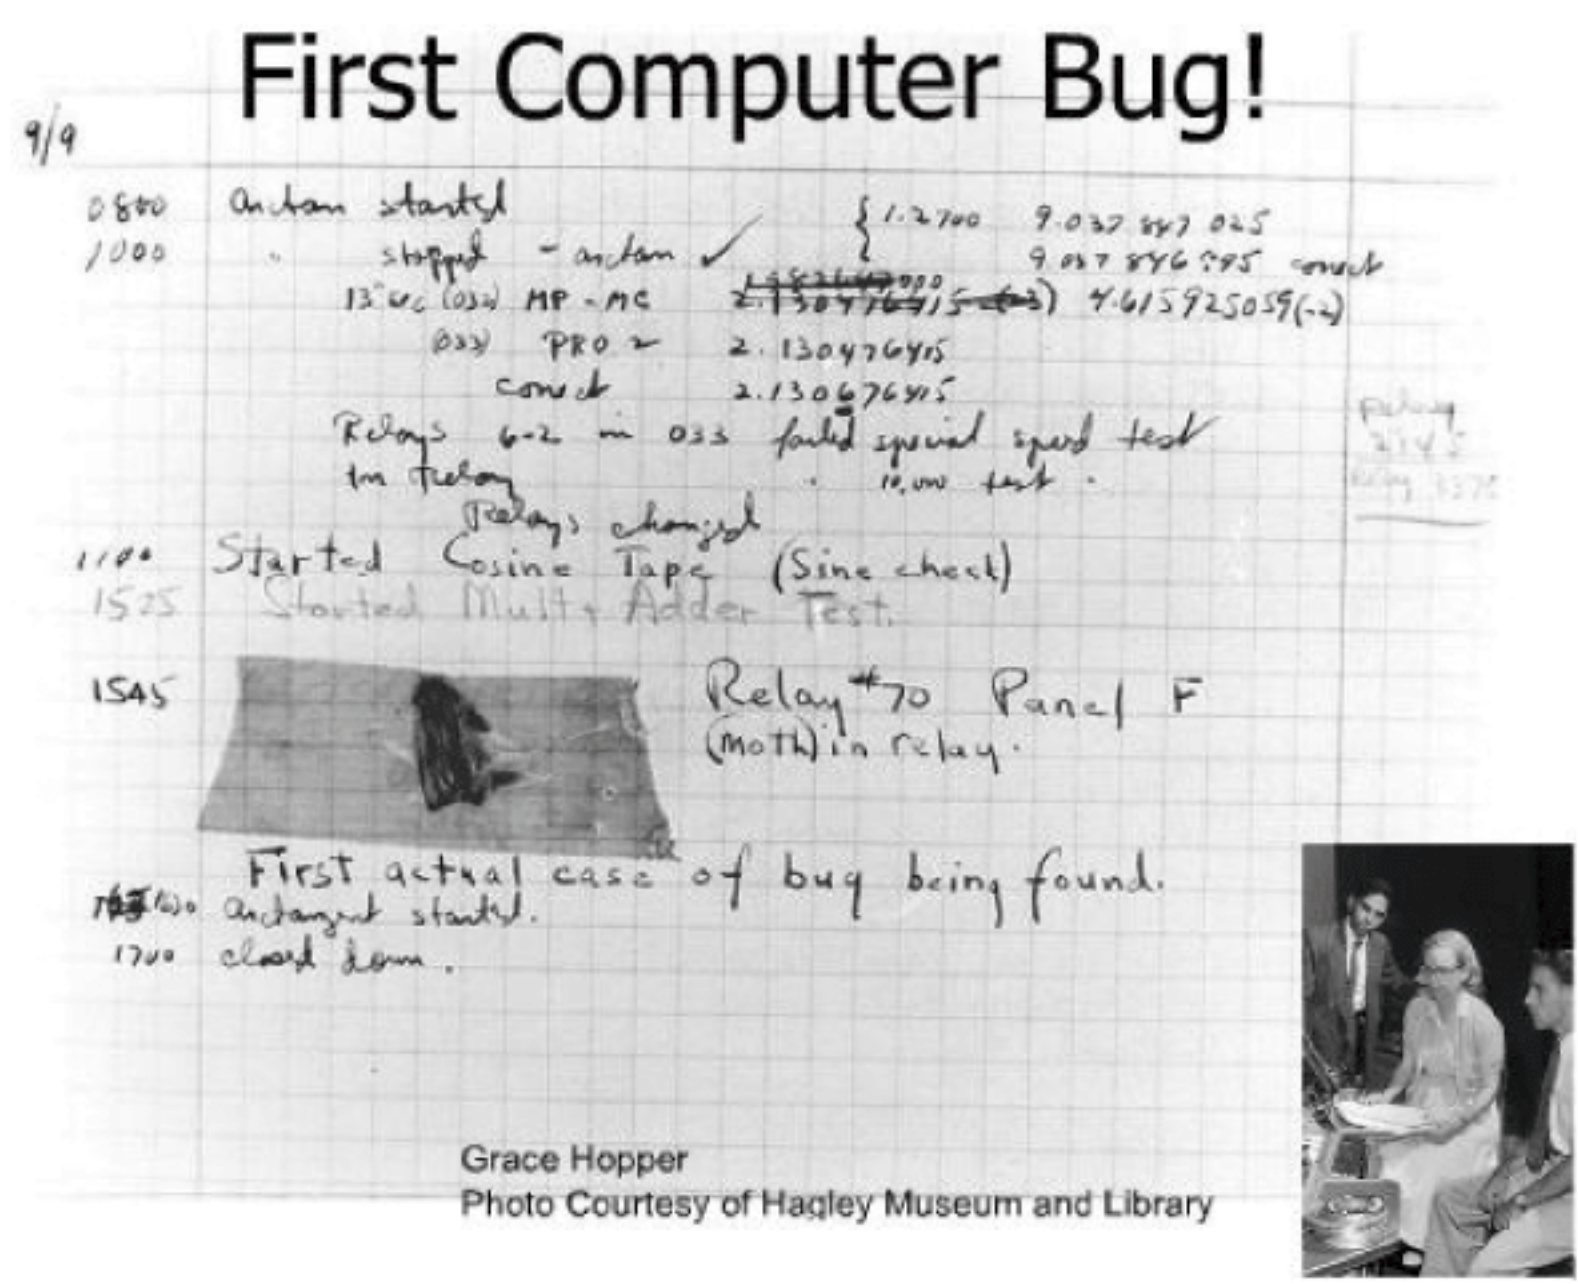 First Computer Bug!
9/9
0800 Antan started
1000 " stopped - antan ✓ { 1.2700 9.037 847 025
9.037 846 995 correct
13"uc (032) MP - MC 2.130476415 (-3) 4.615925059(-2)
(033) PRO 2 2.130476415
correct 2.130676415
Relays 6-2 in 033 failed special speed test
in relay " 10,000 test .
Relays changed
Relay
2145
Relay 3370
1100 Started Cosine Tape (Sine check)
1525 Started Mult+ Adder Test.
1545 Relay #70 Panel F
(moth) in relay.
First actual case of bug being found.
1630 antangent started.
1700 closed down.
Grace Hopper
Photo Courtesy of Hagley Museum and Library